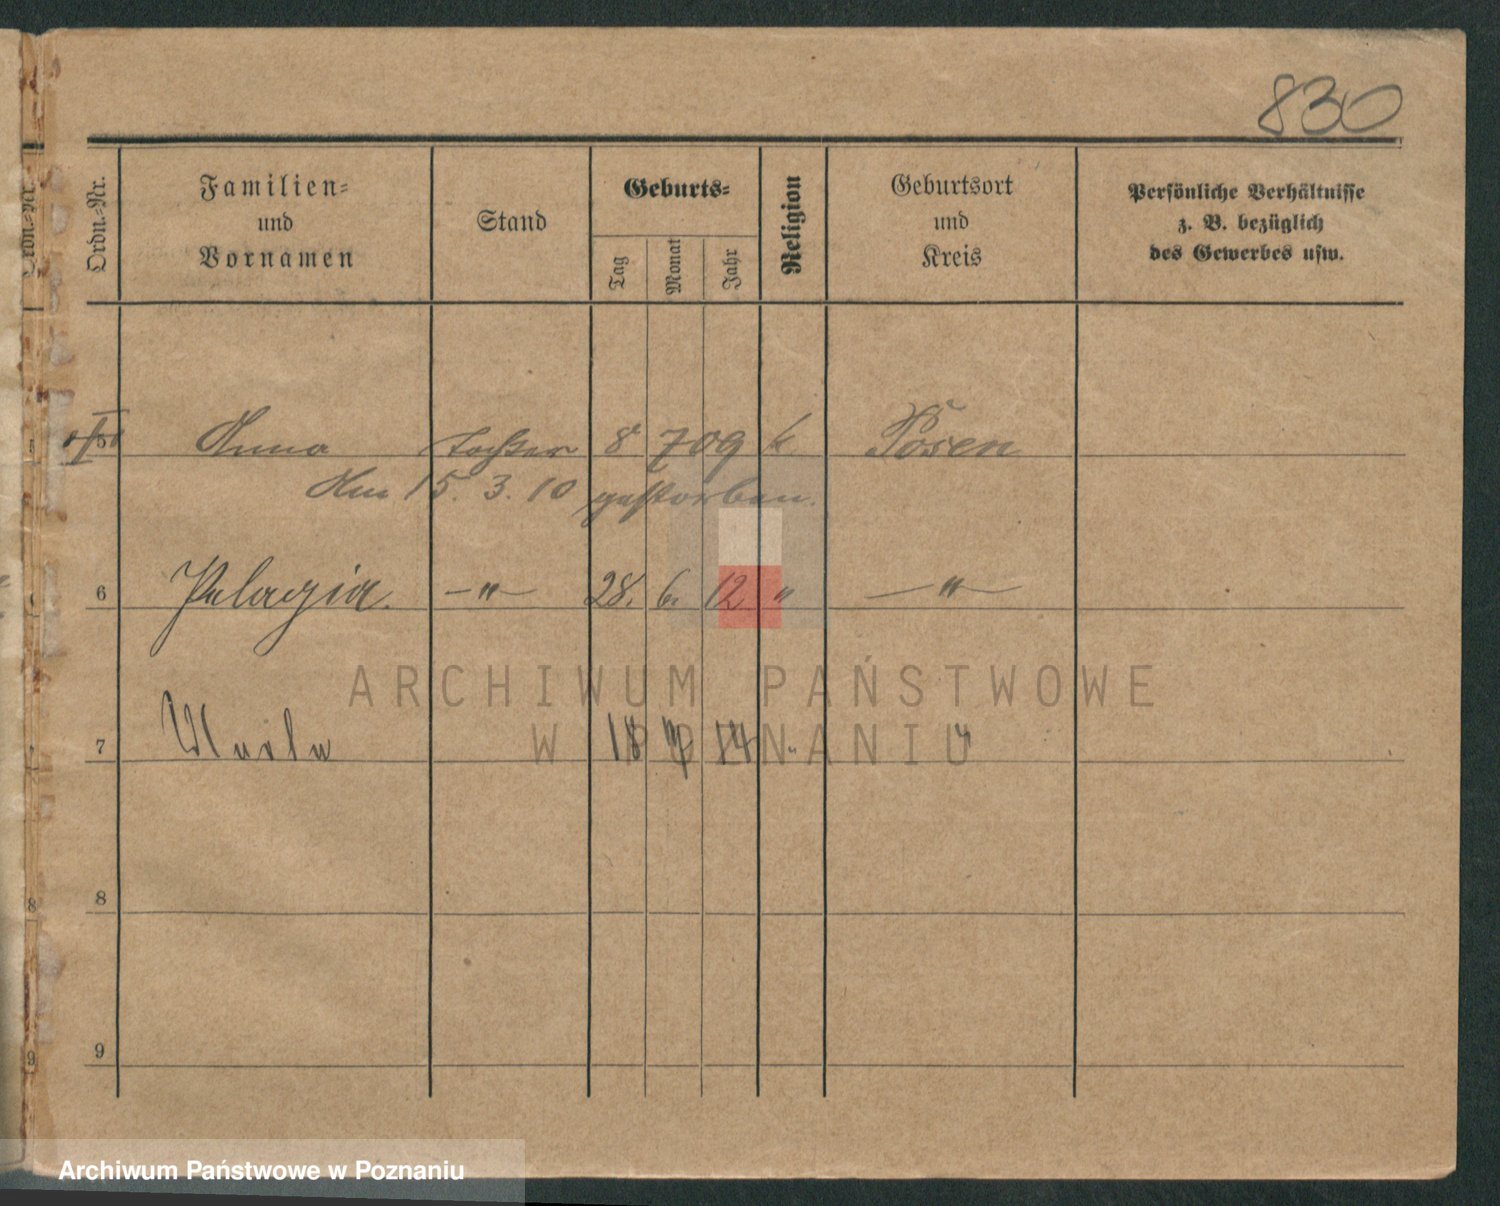 830
Ordn.=Nr. Familien= und Vornamen Stand Geburts= Tag Monat Jahr Religion Geburtsort und Kreis Persönliche Verhältnisse z. B. bezüglich des Gewerbes usw.
5 Anna Tochter 8 7 09 k. Posen
Am 15. 3. 10 gestorben.
6 Pelagia. —"— 28. 6. 12 " —"—
7 18 7 14 " "
8
9
ARCHIWUM PAŃSTWOWE
W POZNANIU
Archiwum Państwowe w Poznaniu